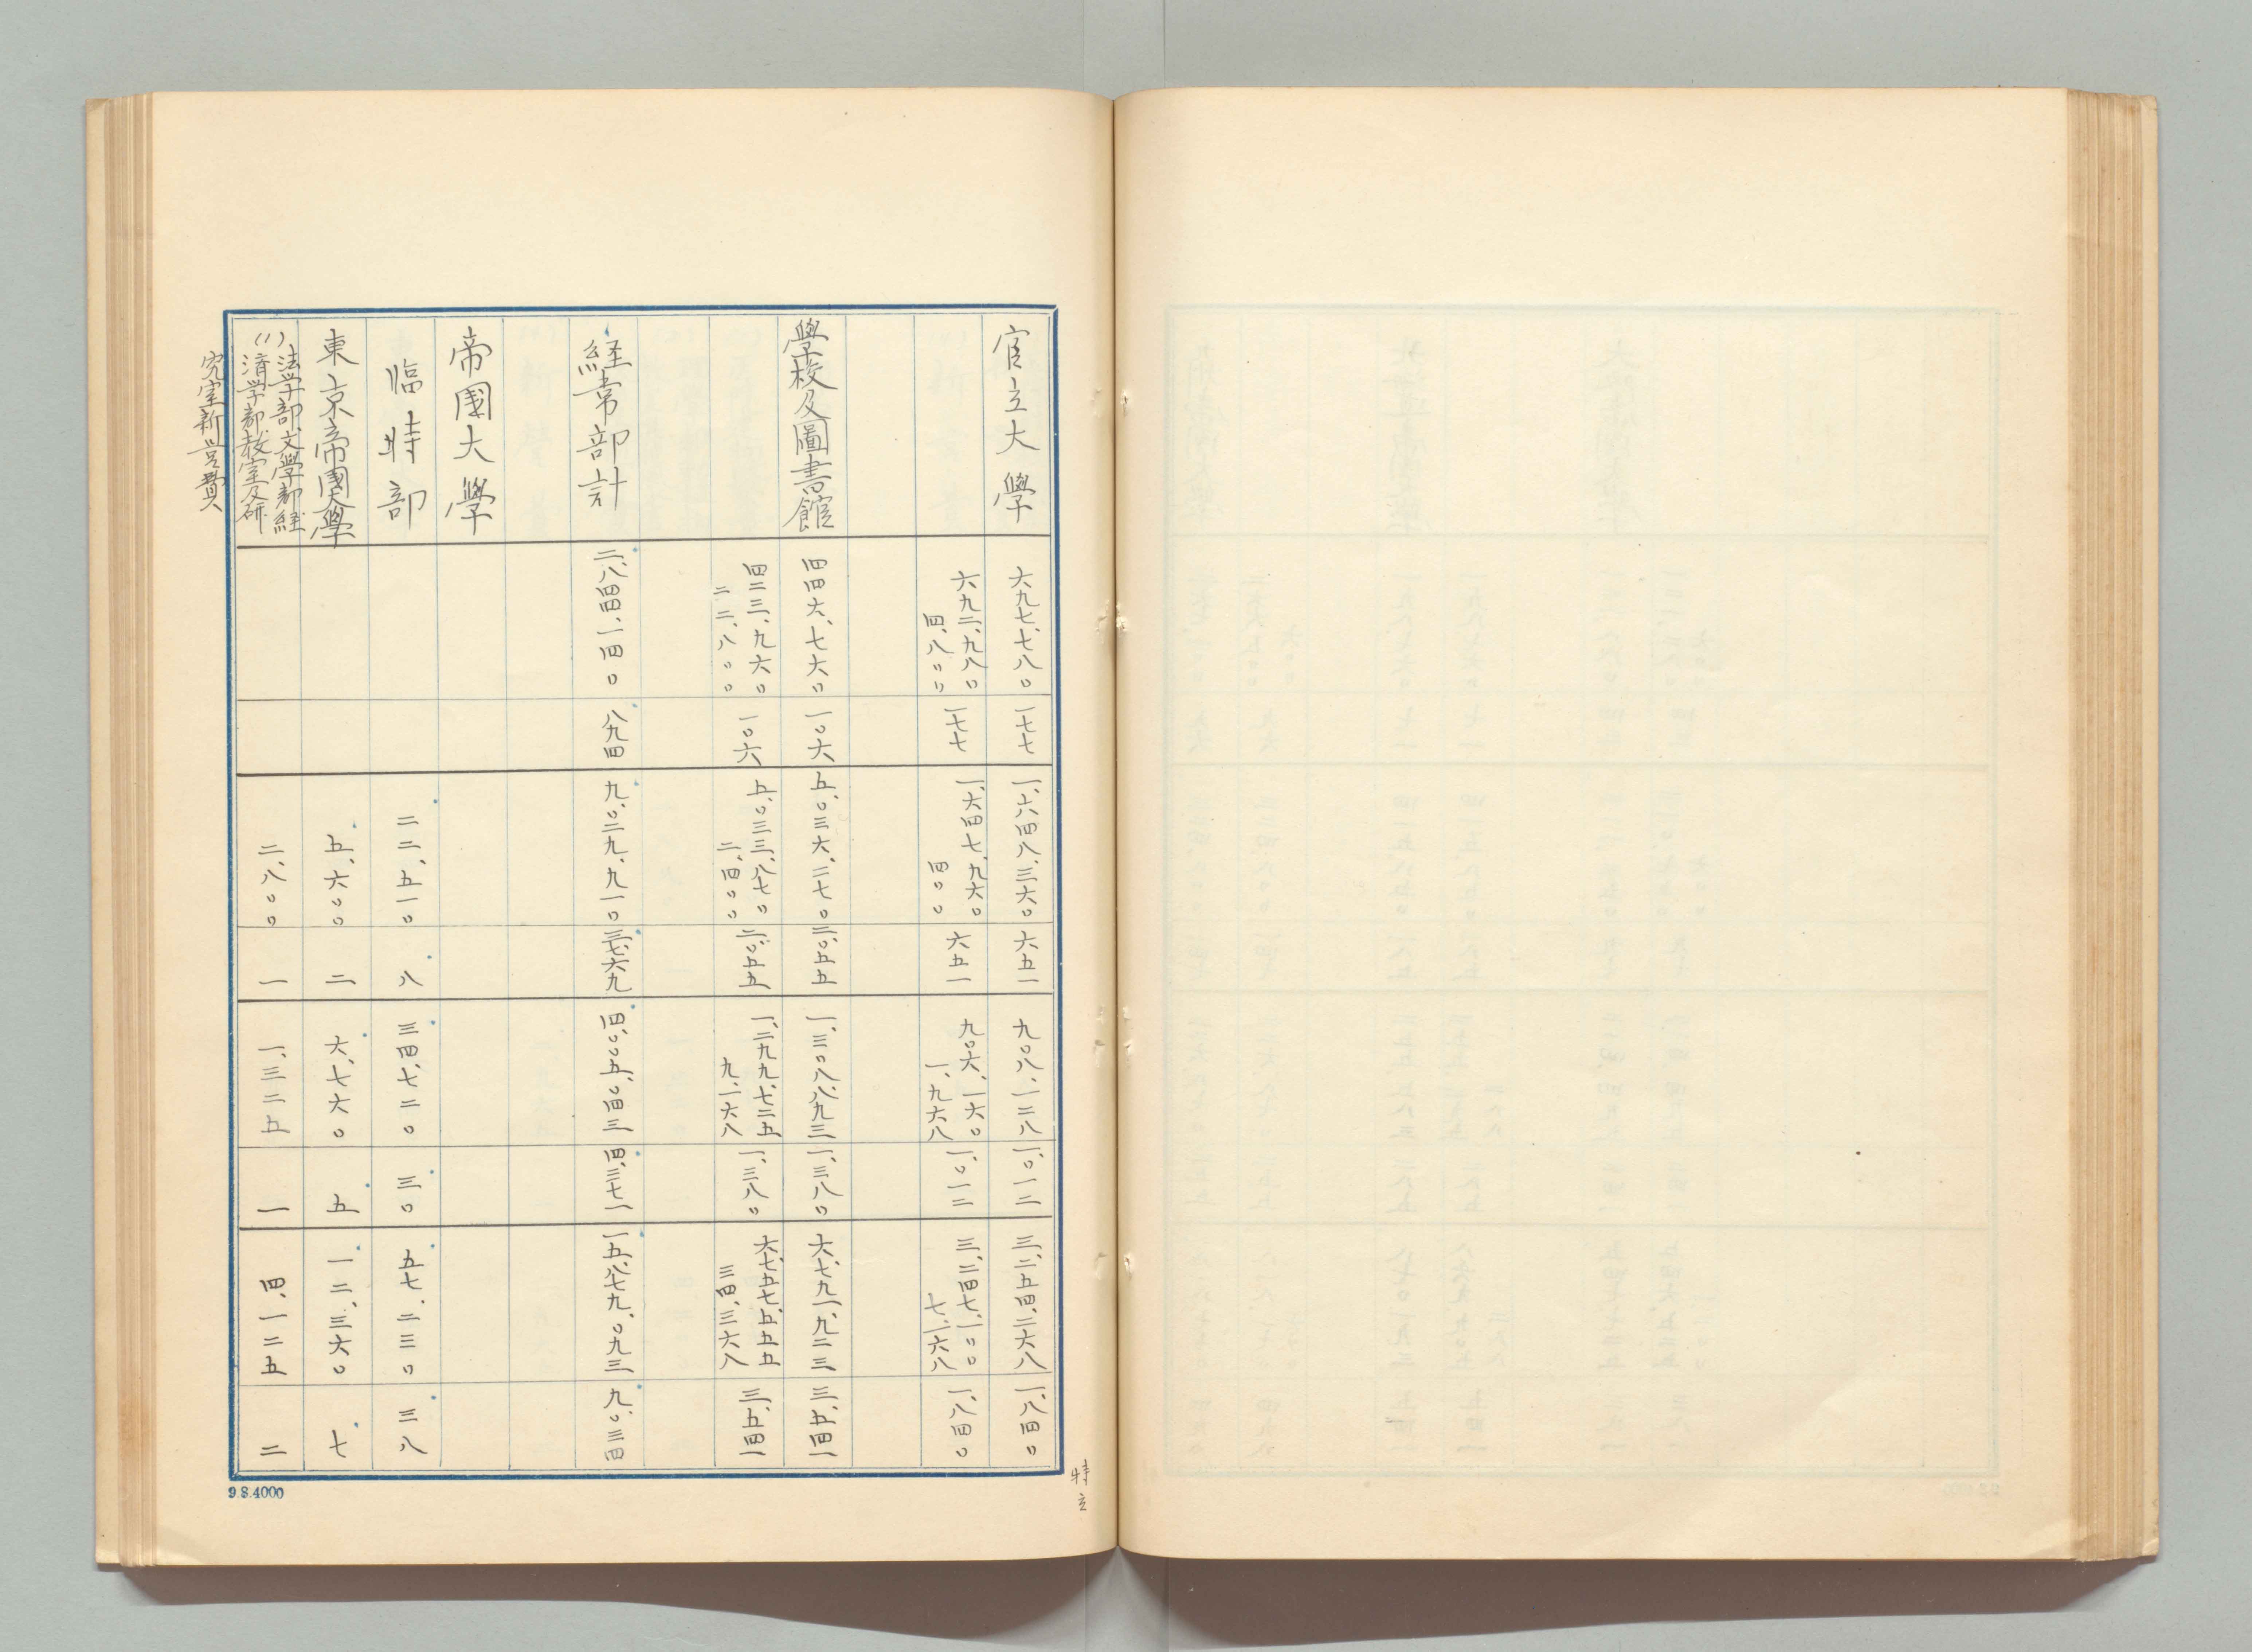 官立大學 六九七、七八〇 一七七 一、六四八、三六〇 六五一 九〇八、一二八 一、〇一二 三、二五四、二六八 一、八四〇
六九二、九八〇 一七七 一、六四七、九六〇 六五一 九〇六、一六〇 一、〇一二 三、二四七、一〇〇 一、八四〇
四、八〇〇 四〇〇 一、九六八 七、一六八
學校及圖書館 四四六、七六〇 一〇六 五、〇三六、二七〇 二、〇五五 一、三〇八、八九三 一、三八〇 六、七九一、九二三 三、五四一
四二三、九六〇 一〇六 五、〇三三、八七〇 二、〇五五 一、二九九、七二五 一、三八〇 六、七五七、五五五 三、五四一
二二、八〇〇 二、四〇〇 九、一六八 三四、三六八
経常部計 二、八四四、一四〇 八九四 九、〇二九、九一〇 三、七六九 四、〇〇五、〇四三 四、三七一 一五、八七九、〇九三 九、〇三四
帝國大學
臨時部 二二、五一〇 八 三四、七二〇 三〇 五七、二三〇 三八
東京帝國大學 五、六〇〇 二 六、七六〇 五 一二、三六〇 七
(1) 法学部、文學部、経
済学部、教室及研 二、八〇〇 一 一、三二五 一 四、一二五 二
究室新営費
9.8.4000